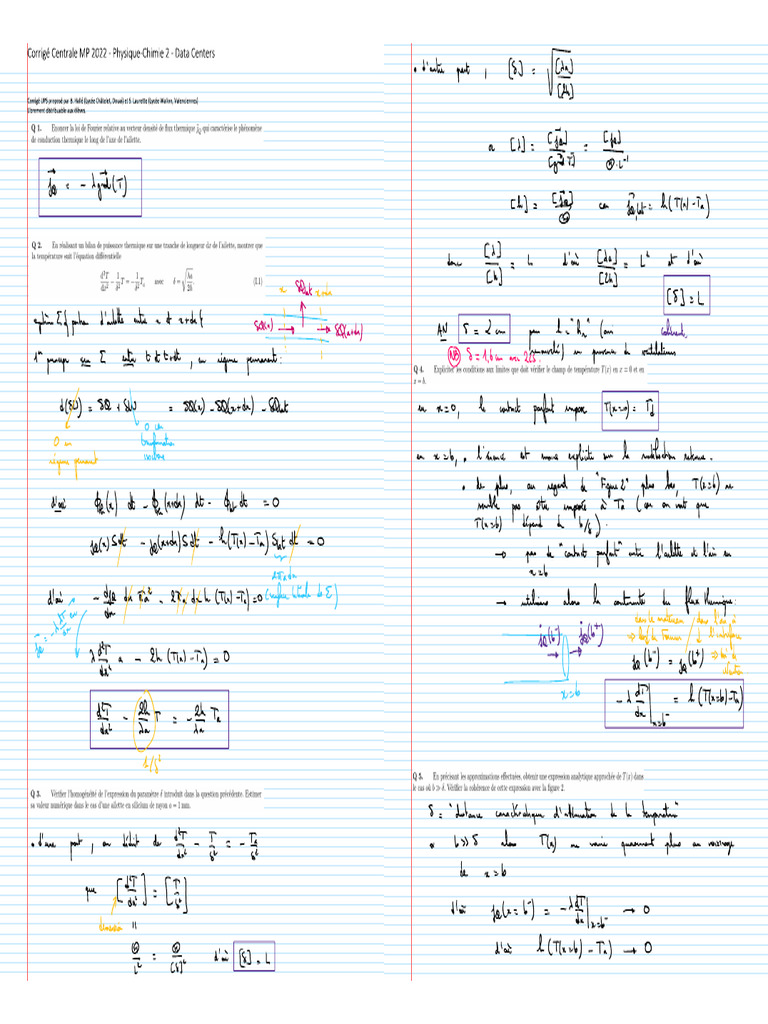 Corrigé Centrale MP 2022 - Physique-Chimie 2 - Data Centers
Librement distribuable aux élèves
Q 1. Enoncer la loi de Fourier relative au vecteur densité de flux thermique j⃗_Q qui caractérise le phénomène
de conduction thermique le long de l'axe de l'ailette.
j⃗_Q = - λ grad(T)
Q 2. En réalisant un bilan de puissance thermique sur une tranche de longueur dx de l'ailette, montrer que
la température suit l'équation différentielle
d²T/dx² - 1/δ² T = - 1/δ² Tₐ avec δ = √(λa/2h) (I.1)
x δQlat x+dx
δQ(x) → → δQ(x+dx)
système Σ {portion d'ailette entre x et x+dx}
1er principe sur Σ entre t et t+dt, en régime permanent :
d(δU) = δQ + δW = δQ(x) - δQ(x+dx) - δQlat
0 en
régime permanent
0 car
transformation
isochore
d'où ϕ_Q(x) dt - ϕ_Q(x+dx) dt - ϕ_lat dt = 0
j_Q(x) S dt - j_Q(x+dx) S dt - h(T(x)-Tₐ) S_lat dt = 0
2πa dx
d'où - dj_Q/dx dx πa² - 2πa dx h (T(x)-Tₐ) = 0 (surface latérale de Σ)
j_Q = -λ dT/dx
λ d²T/dx² a - 2h (T(x)-Tₐ) = 0
d²T/dx² - 2h/λa T = - 2h/λa Tₐ
1/δ²
Q 3. Vérifier l'homogénéité de l'expression du paramètre δ introduit dans la question précédente. Estimer
sa valeur numérique dans le cas d'une ailette en silicium de rayon a = 1 mm.
• d'une part, on déduit de d²T/dx² - T/δ² = - Tₐ/δ²
que [d²T/dx²] = [T/δ²]
dimension
Θ/L² = Θ/[δ]² d'où [δ] = L
• d'autre part, [δ] = √([λa]/[2h])
or [λ] = [j_Q]/[grad T] = [j_Q]/(Θ.L⁻¹)
[h] = [j_Q]/Θ car j_Q,lat = h(T(x)-Tₐ)
donc [λ]/[h] = L d'où [λa]/[2h] = L² et d'où
[δ] = L
AN δ = 2 cm pour h = "h₂" (air
en présence de ventilateurs
NB
Q 4. Expliciter les conditions aux limites que doit vérifier le champ de température T(x) en x = 0 et en
x = b.
en x=0, le contact parfait impose T(x=0) = T_d
en x=b, • l'énoncé est moins explicite sur la modélisation retenue.
• de plus, au regard de "Figure 2" plus bas, T(x=b) ne
semble pas être imposée à Tₐ (car on voit que
T(x=b) dépend de b/δ).
→ pas de "contact parfait" entre l'ailette et l'air en
x=b
→ utilisons alors la continuité du flux thermique :
j_Q(b⁻) j_Q(b⁺)
x=b
dans le matériau
⇒ loi de Fourier
dans l'air à
l'interface
⇒ loi de
Newton
j_Q(b⁻) = j_Q(b⁺)
-λ dT/dx|x=b⁻ = h(T(x=b)-Tₐ)
Q 5. En précisant les approximations effectuées, obtenir une expression analytique approchée de T(x) dans
le cas où b ≫ δ. Vérifier la cohérence de cette expression avec la figure 2.
δ = "distance caractéristique d'atténuation de la température"
si b≫δ alors T(x) ne varie quasiment plus au voisinage
de x=b
d'où j_Q(x=b⁻) = -λ dT/dx|x=b⁻ → 0
d'où h(T(x=b)-Tₐ) → 0